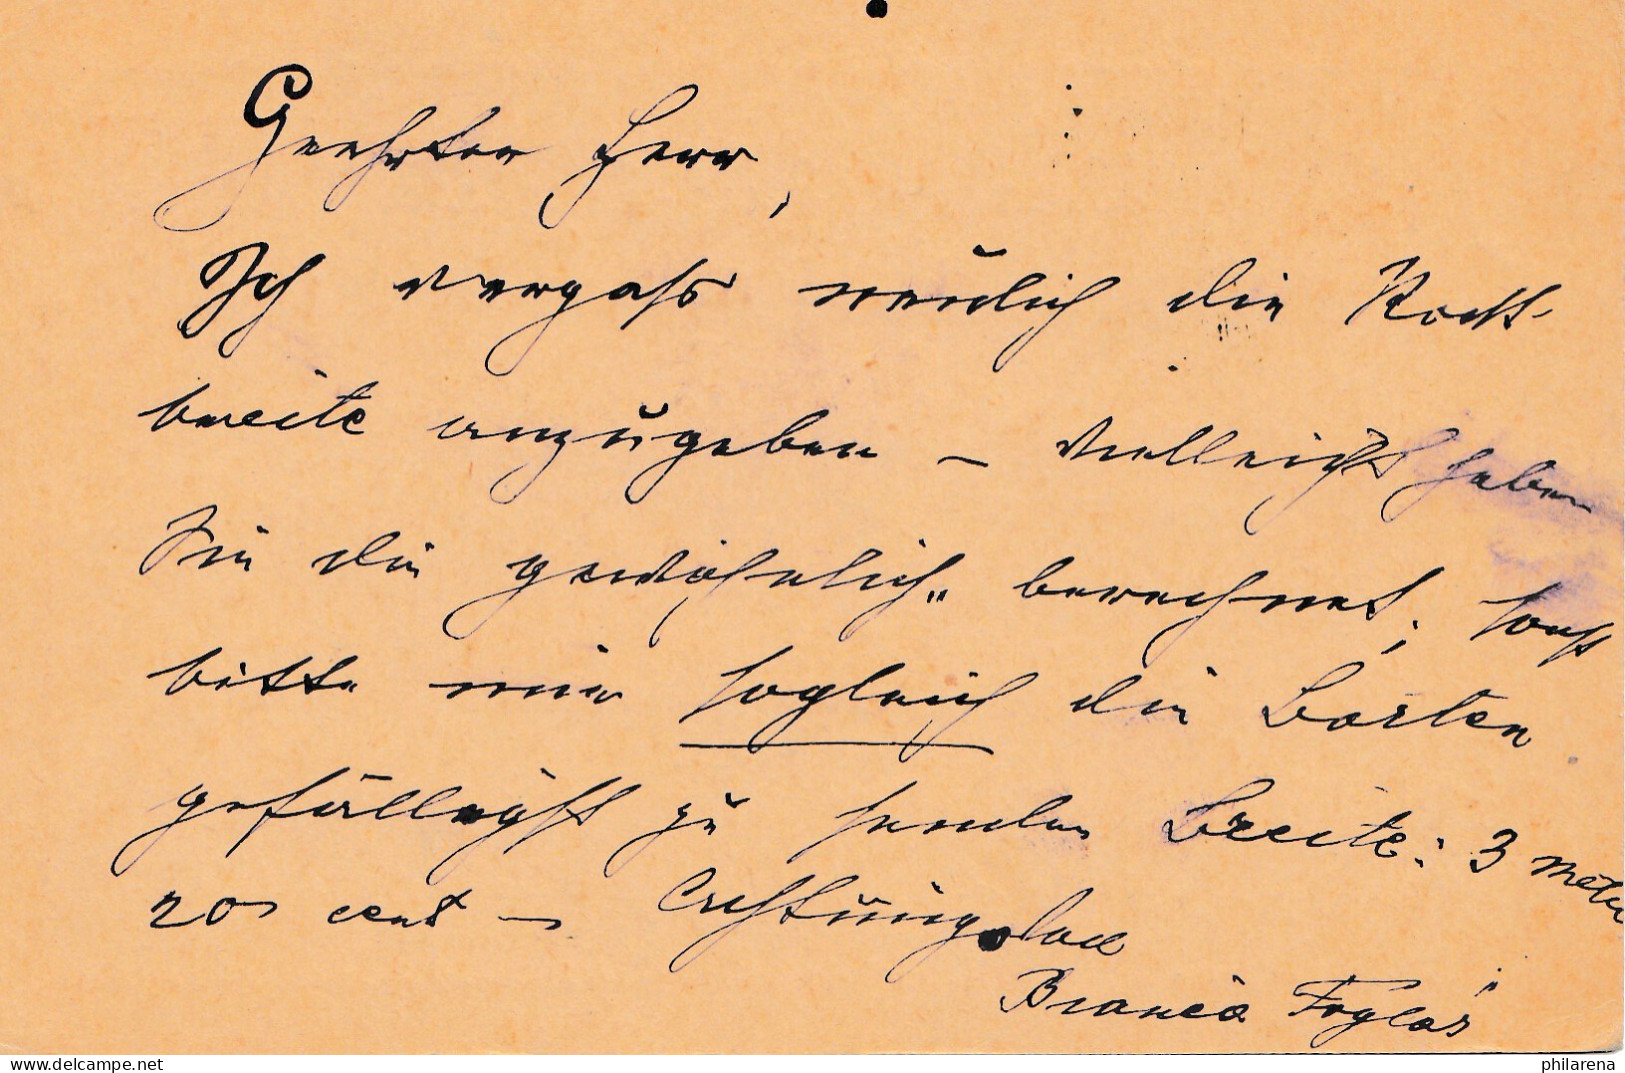 Geehrter Herr,
Ich vergass neulich die Rock-
breite anzugeben – vielleicht haben
Sie die gewöhnlich berechnet, sonst
bitte mir sogleich die Borten
gefälligst zu senden Breite: 3 Meter
20 cent – Achtungsvoll
Branco Foglar
philarena
www.delcampe.net